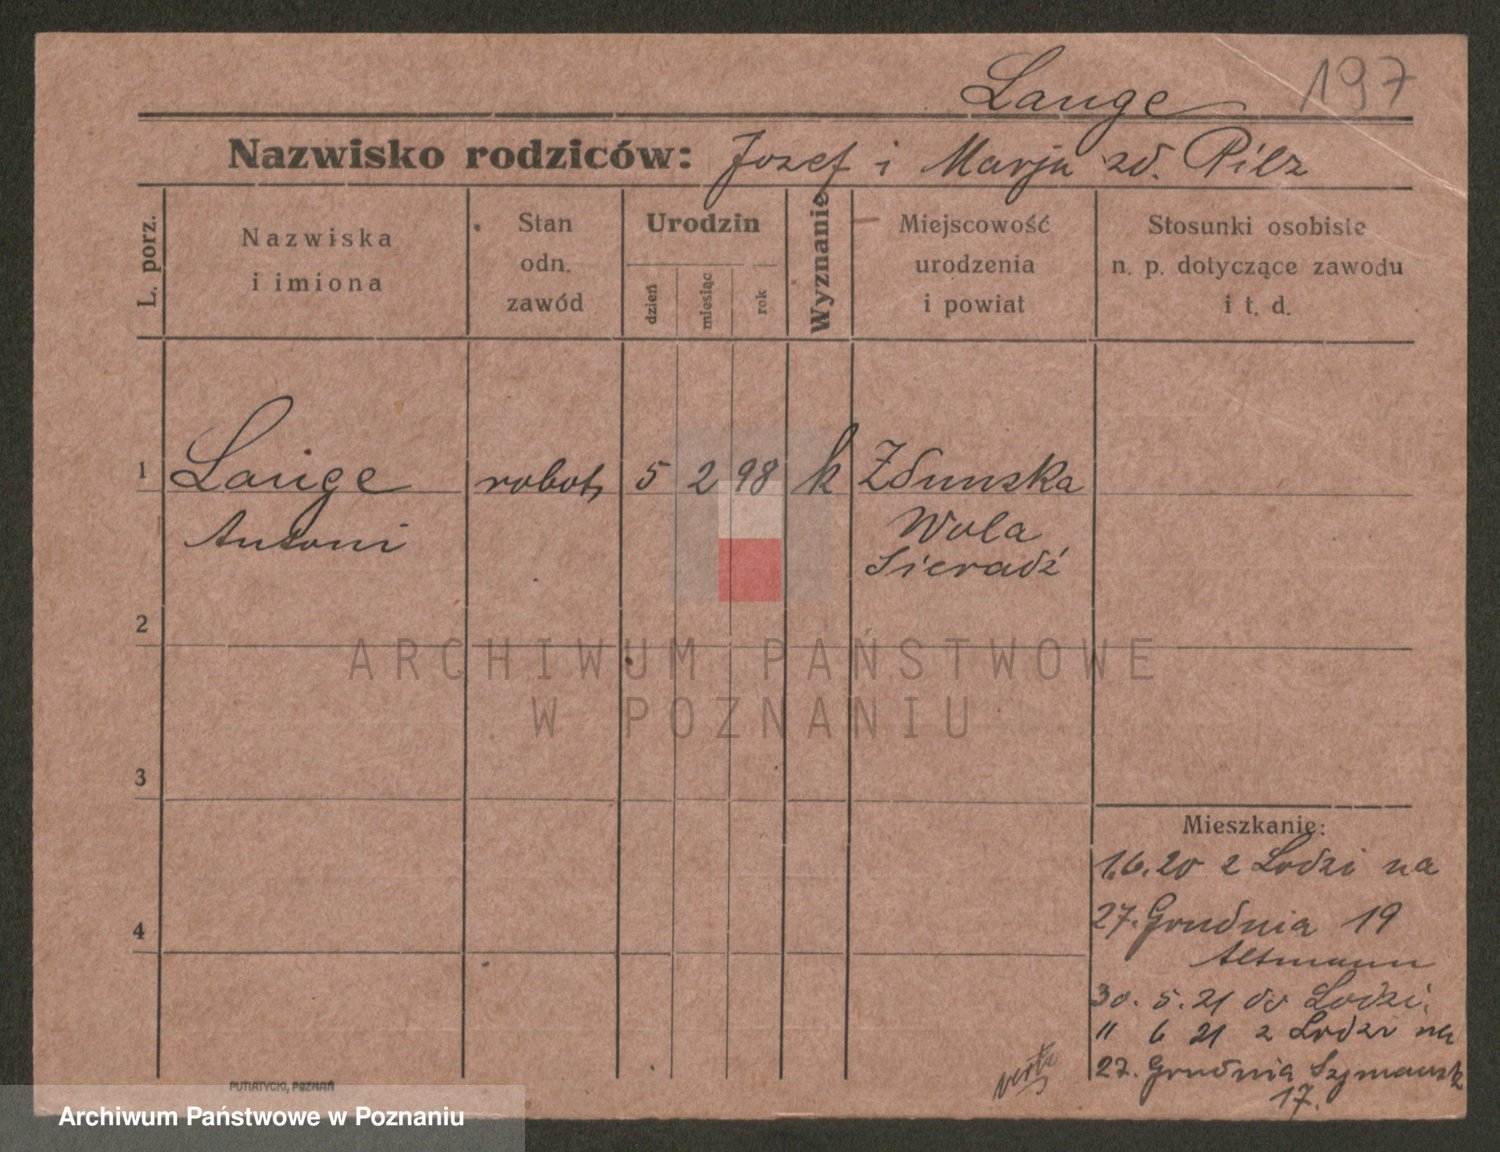 Lange 197
Nazwisko rodziców: Jozef i Marja zd. Pilz
L. porz.
Nazwiska
i imiona
Stan
odn.
zawód
Urodzin
dzień
miesiąc
rok
Wyznanie
Miejscowość
urodzenia
i powiat
Stosunki osobiste
n. p. dotyczące zawodu
i t. d.
1 Lange robotn 5 2 98 k Zdunska
Antoni Wola
Sieradź
2
ARCHIWUM PAŃSTWOWE
W POZNANIU
3
Mieszkanie:
1.6.20 z Lodzi na
27. Grudnia 19
4
Altmann
30. 5. 21 do Lodzi.
11 6 21 z Lodzi na
27. Grudnia Szymansk
17.
verte
PUTIATYCKI, POZNAŃ
Archiwum Państwowe w Poznaniu